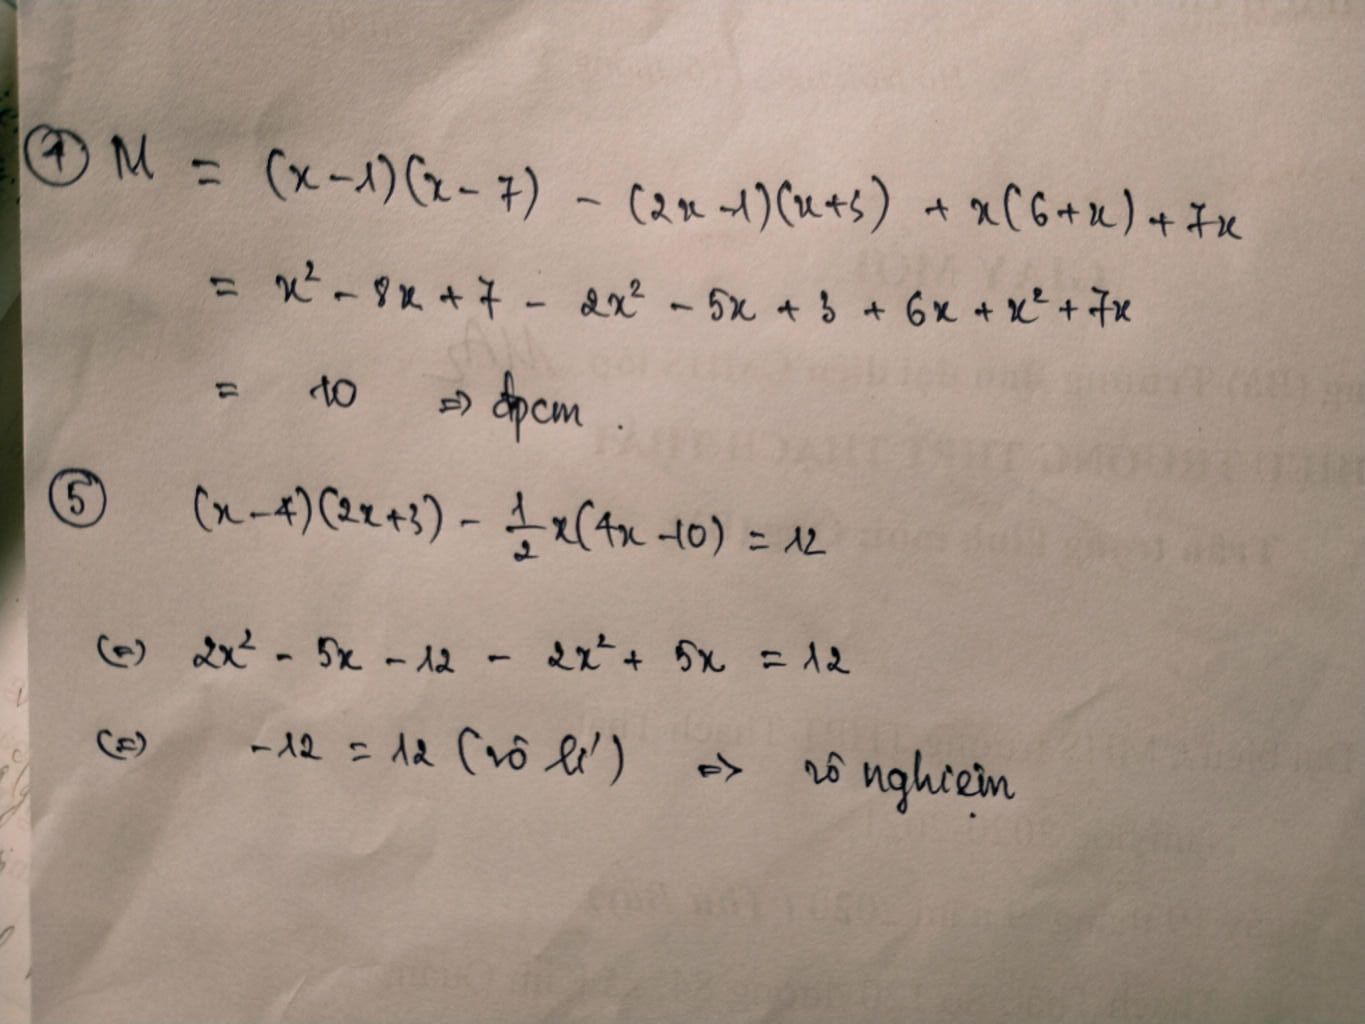 ④ M = (x-1)(x-7) - (2x-1)(x+3) + x(6+x) + 7x
= x² - 8x + 7 - 2x² - 5x + 3 + 6x + x² + 7x
= 10 => đpcm.
⑤ (x-4)(2x+3) - 1/2 x(4x-10) = 12
(=) 2x² - 5x - 12 - 2x² + 5x = 12
(=) -12 = 12 (vô lí) => vô nghiệm